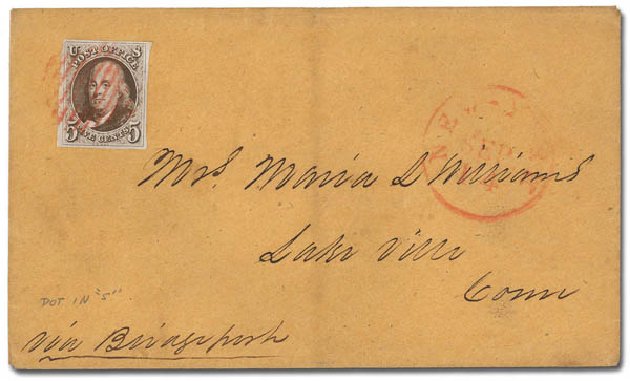 U S
POST OFFICE
5 FIVE CENTS 5
Mrs. Maria D Williams
Lake Ville
Conn
DOT IN "S"
via Bridgeport